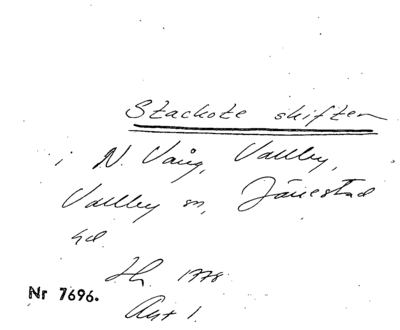 Stackote skiften
i N. Vång, Vallby,
Vallby sn, Järrestad
hd.
1778.
Nr 7696.
Akt 1.